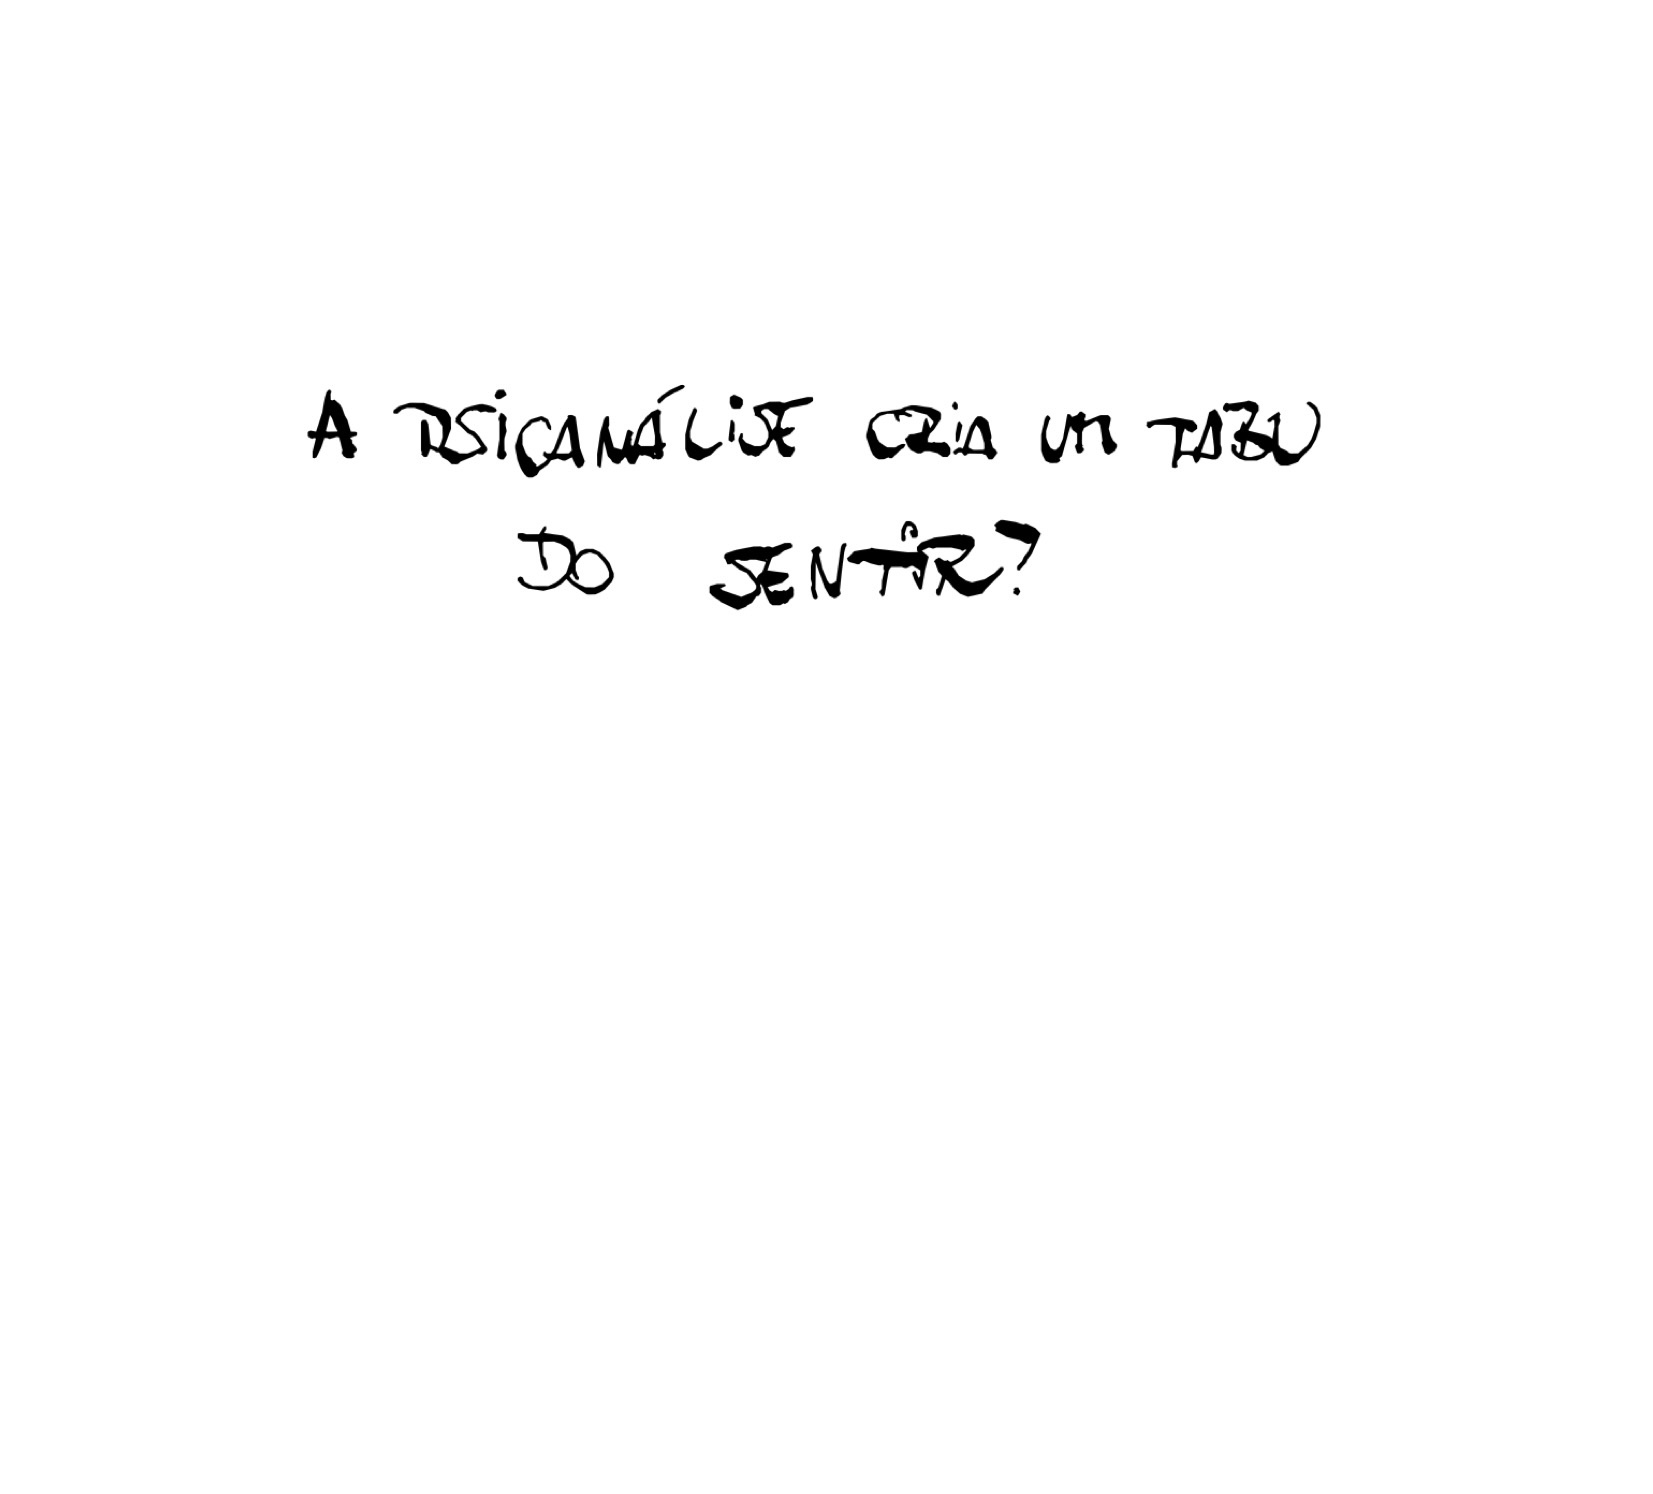 A PSICANÁLISE CRIA UM TABU
DO SENTIR?